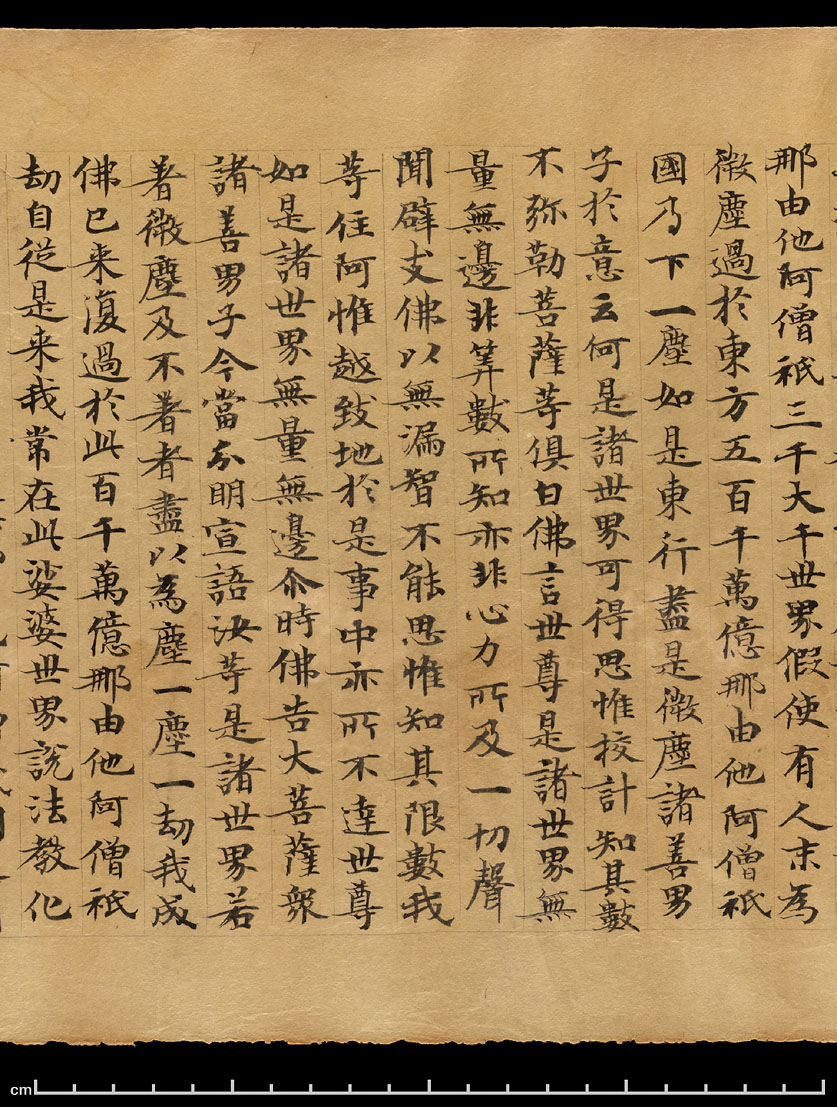 那由他阿僧祇三千大千世界假使有人末為
微塵過於東方五百千萬億那由他阿僧祇
國乃下一塵如是東行盡是微塵諸善男
子於意云何是諸世界可得思惟挍計知其數
不弥勒菩薩等俱白佛言世尊是諸世界無
量無邊非筭數所知亦非心力所及一切聲
聞辟支佛以無漏智不能思惟知其限數我
等住阿惟越致地於是事中亦所不達世尊
如是諸世界無量無邊尒時佛告大菩薩衆
諸善男子今當分明宣語汝等是諸世界若
著微塵及不著者盡以為塵一塵一劫我成
佛已来復過於此百千萬億那由他阿僧祇
劫自從是来我常在此娑婆世界說法教化